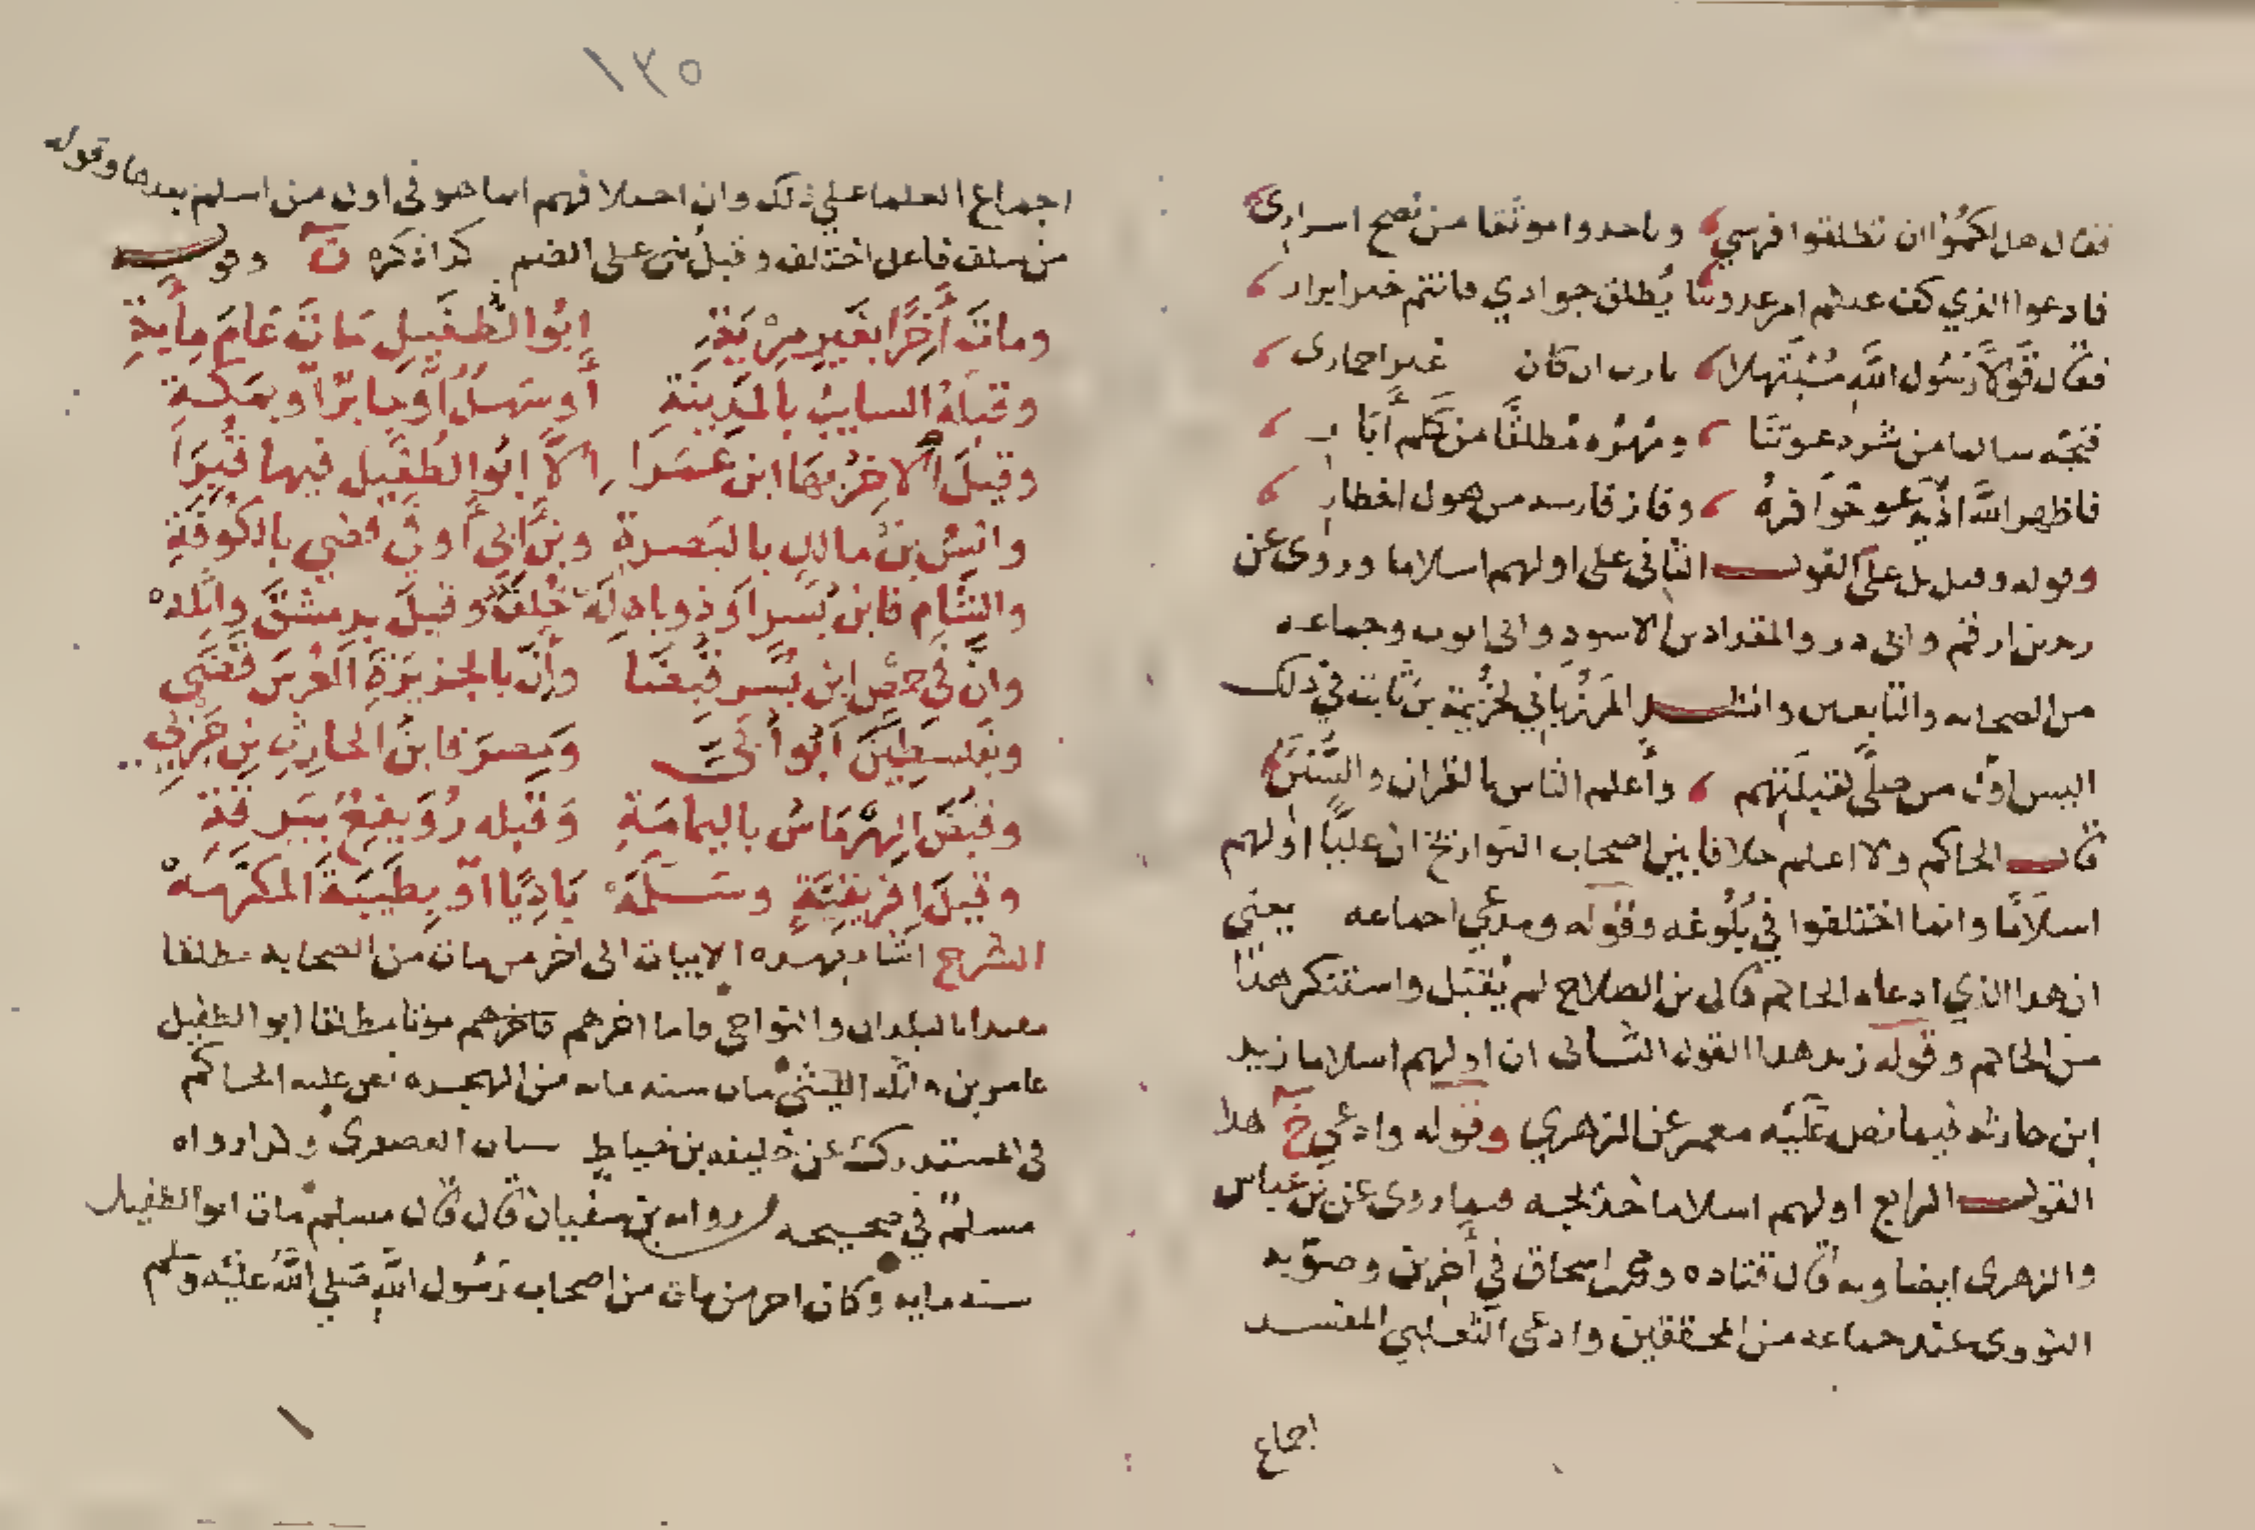 فقال هل لكموا ان تطلقوا فرسي وتاخدوا موثقا من نصح اسراري
فادعوا الذي كف عنكم امر عدوتنا يُطلق جوادي فانتم خير ابرار
فقال قولا رَسُول اللَّه مُبْتهلا يارب ان كان غير اخماري
فنجه سالما من شر دعوتنَا ومُهْرُه مُطلقًا من كلم آثار
فاظهر اللَّه اذ يدعو حوَافرهُ وفاز فارسه من هول اخطار
وقوله وقيل بل على القول الثاني على اولهم اسلاما وروى عن
زيد بن ارقم وابي در والمقداد بن الاسود وابي ايوب وجماعه
من الصحابه والتابعين وانشد المَرْزُبَاني لخُزيمة بن ثابت في ذلك
اليس اوّل من صلَّى لقبلتهم وأعلم الناس بالقران والسُّنَن
قال الحاكم ولا اعلم خلافا بين اصحاب التوارتخ ان عليًّا اولهم
اسلاَمًا وانما اختلفوا في بُلُوغه وقوله ومدعي اجماعه يعني
ان هدا الذي ادعاه الحاكم قال بن الصلاح لم يُقبَل واستنكر هدا
من الحاكم وقوله زيد هدا القول الثالث ان اولهم اسلاما زيد
ابن حارثه فيما نص عَلَيْه معمر عن الزهري وقوله وادعي خ هدا
القول الرابع اولهم اسلاما خديجه فيما روى عن بن عباس
والزهرى ايضا وبه قال قتاده ومحمد بن اسحاق في آخرين وصوّبه
النووى عند جماعه من المحققين وادعى الثعلبي المفسر
اجماع
١٣٥
اجماع العلما على ذلك وان اختلافهم انما هو في اول من اسلم بعدها وقوله
من سلف فاعل اختلف وقبلُ بني على الضم كدا ذكره ن وقوله
وماتَ آخِرًا بغَير مِرْيَةِ ابُو الطفَيلِ مَاتَ عَامَ مِأيةِ
وقبلَهُ السايبُ بالمَدِينَةِ أَو سَهلٌ اَوْ جابرٌ اَو بمَكةِ
وقيلَ الاخِرُ بهَا ابن عُمَرَا اِلاَّ ابُو الطُفَيْل فيها قُبِرَا
وانسُ بنُ مالكٍ بالبَصرةِ وبنُ أبى أوفى قضي بالكُوفَةِ
والشَّامِ فابن بُسْرٍ اَو ذو باهِلَهْ خُلفٌ وقيلَ بدِمَشقَ واثلهْ
وانَّ في حِمْصٍ ابن بُسْرٍ قُبِضَا وأنَّ بالجزيرَةِ العُرسَ قَضَى
وبفِلسطِينَ اَبُو أُبَيّ وَمِصرَ فابنُ الحَارِثِ بن جَزْيِ
وقُبضَ الهِرْمَاسُ باليمامَةِ وَقبله رُوَيفِعُ ببَرقَةِ
وقيلَ اِفرِيقيَّةٍ وسَلَمَهْ بَادِيًا اَو بِطَيبَةَ المكرَّمَهْ
الشرح اشار بهده الابيات الى اخر من مات من الصحابه مطلقا
مقيدا بالبلدان والنواحي فاما اخرهم فاخرهم موتا مطلقا ابو الطفيل
عامر بن واثله الليثي مات سنه مايه من الهجره نص عليه الحاكم
في المستدرك عن خليفه بن خياط شباب العصفرى وكدا رواه
مسلمٌ في صحيحه روايه بن سفيان قال قال مسلم مات ابو الطفيل
سنه مايه وكان اخر من مات من اصحاب رَسُول اللَّه صَلي اللَّهُ عَليْه وسلم